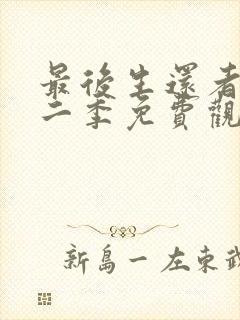 最後生還者
二季免費觀
新島一 左東武